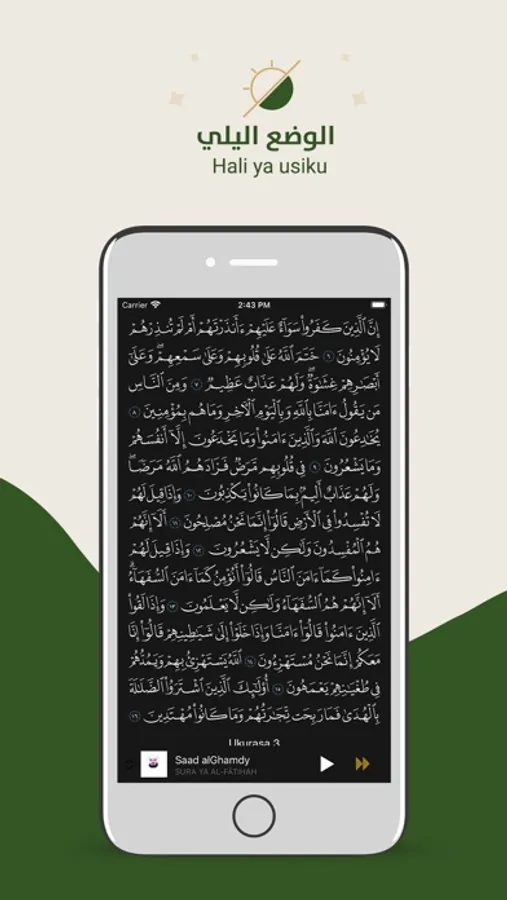 الوضع اليلي
Hali ya usiku
Carrier 2:43 PM
إِنَّ ٱلَّذِينَ كَفَرُواْ سَوَآءٌ عَلَيْهِمْ ءَأَنذَرْتَهُمْ أَمْ لَمْ تُنذِرْهُمْ
لَا يُؤْمِنُونَ ٦ خَتَمَ ٱللَّهُ عَلَىٰ قُلُوبِهِمْ وَعَلَىٰ سَمْعِهِمْۖ وَعَلَىٰٓ
أَبْصَٰرِهِمْ غِشَٰوَةٌۖ وَلَهُمْ عَذَابٌ عَظِيمٌ ٧ وَمِنَ ٱلنَّاسِ
مَن يَقُولُ ءَامَنَّا بِٱللَّهِ وَبِٱلْيَوْمِ ٱلْأٓخِرِ وَمَا هُم بِمُؤْمِنِينَ ٨
يُخَٰدِعُونَ ٱللَّهَ وَٱلَّذِينَ ءَامَنُواْ وَمَا يَخْدَعُونَ إِلَّآ أَنفُسَهُمْ
وَمَا يَشْعُرُونَ ٩ فِي قُلُوبِهِم مَّرَضٌ فَزَادَهُمُ ٱللَّهُ مَرَضًاۖ
وَلَهُمْ عَذَابٌ أَلِيمٌۢ بِمَا كَانُواْ يَكْذِبُونَ ١٠ وَإِذَا قِيلَ لَهُمْ
لَا تُفْسِدُواْ فِي ٱلْأَرْضِ قَالُوٓاْ إِنَّمَا نَحْنُ مُصْلِحُونَ ١١ أَلَآ إِنَّهُمْ
هُمُ ٱلْمُفْسِدُونَ وَلَٰكِن لَّا يَشْعُرُونَ ١٢ وَإِذَا قِيلَ لَهُمْ
ءَامِنُواْ كَمَآ ءَامَنَ ٱلنَّاسُ قَالُوٓاْ أَنُؤْمِنُ كَمَآ ءَامَنَ ٱلسُّفَهَآءُۗ
أَلَآ إِنَّهُمْ هُمُ ٱلسُّفَهَآءُ وَلَٰكِن لَّا يَعْلَمُونَ ١٣ وَإِذَا لَقُواْ
ٱلَّذِينَ ءَامَنُواْ قَالُوٓاْ ءَامَنَّا وَإِذَا خَلَوْاْ إِلَىٰ شَيَٰطِينِهِمْ قَالُوٓاْ إِنَّا
مَعَكُمْ إِنَّمَا نَحْنُ مُسْتَهْزِءُونَ ١٤ ٱللَّهُ يَسْتَهْزِئُ بِهِمْ وَيَمُدُّهُمْ
فِي طُغْيَٰنِهِمْ يَعْمَهُونَ ١٥ أُوْلَٰٓئِكَ ٱلَّذِينَ ٱشْتَرَوُاْ ٱلضَّلَٰلَةَ
بِٱلْهُدَىٰ فَمَا رَبِحَت تِّجَٰرَتُهُمْ وَمَا كَانُواْ مُهْتَدِينَ ١٦
Ukurasa 3
Saad alGhamdy
SURA YA AL-FĀTIHAH